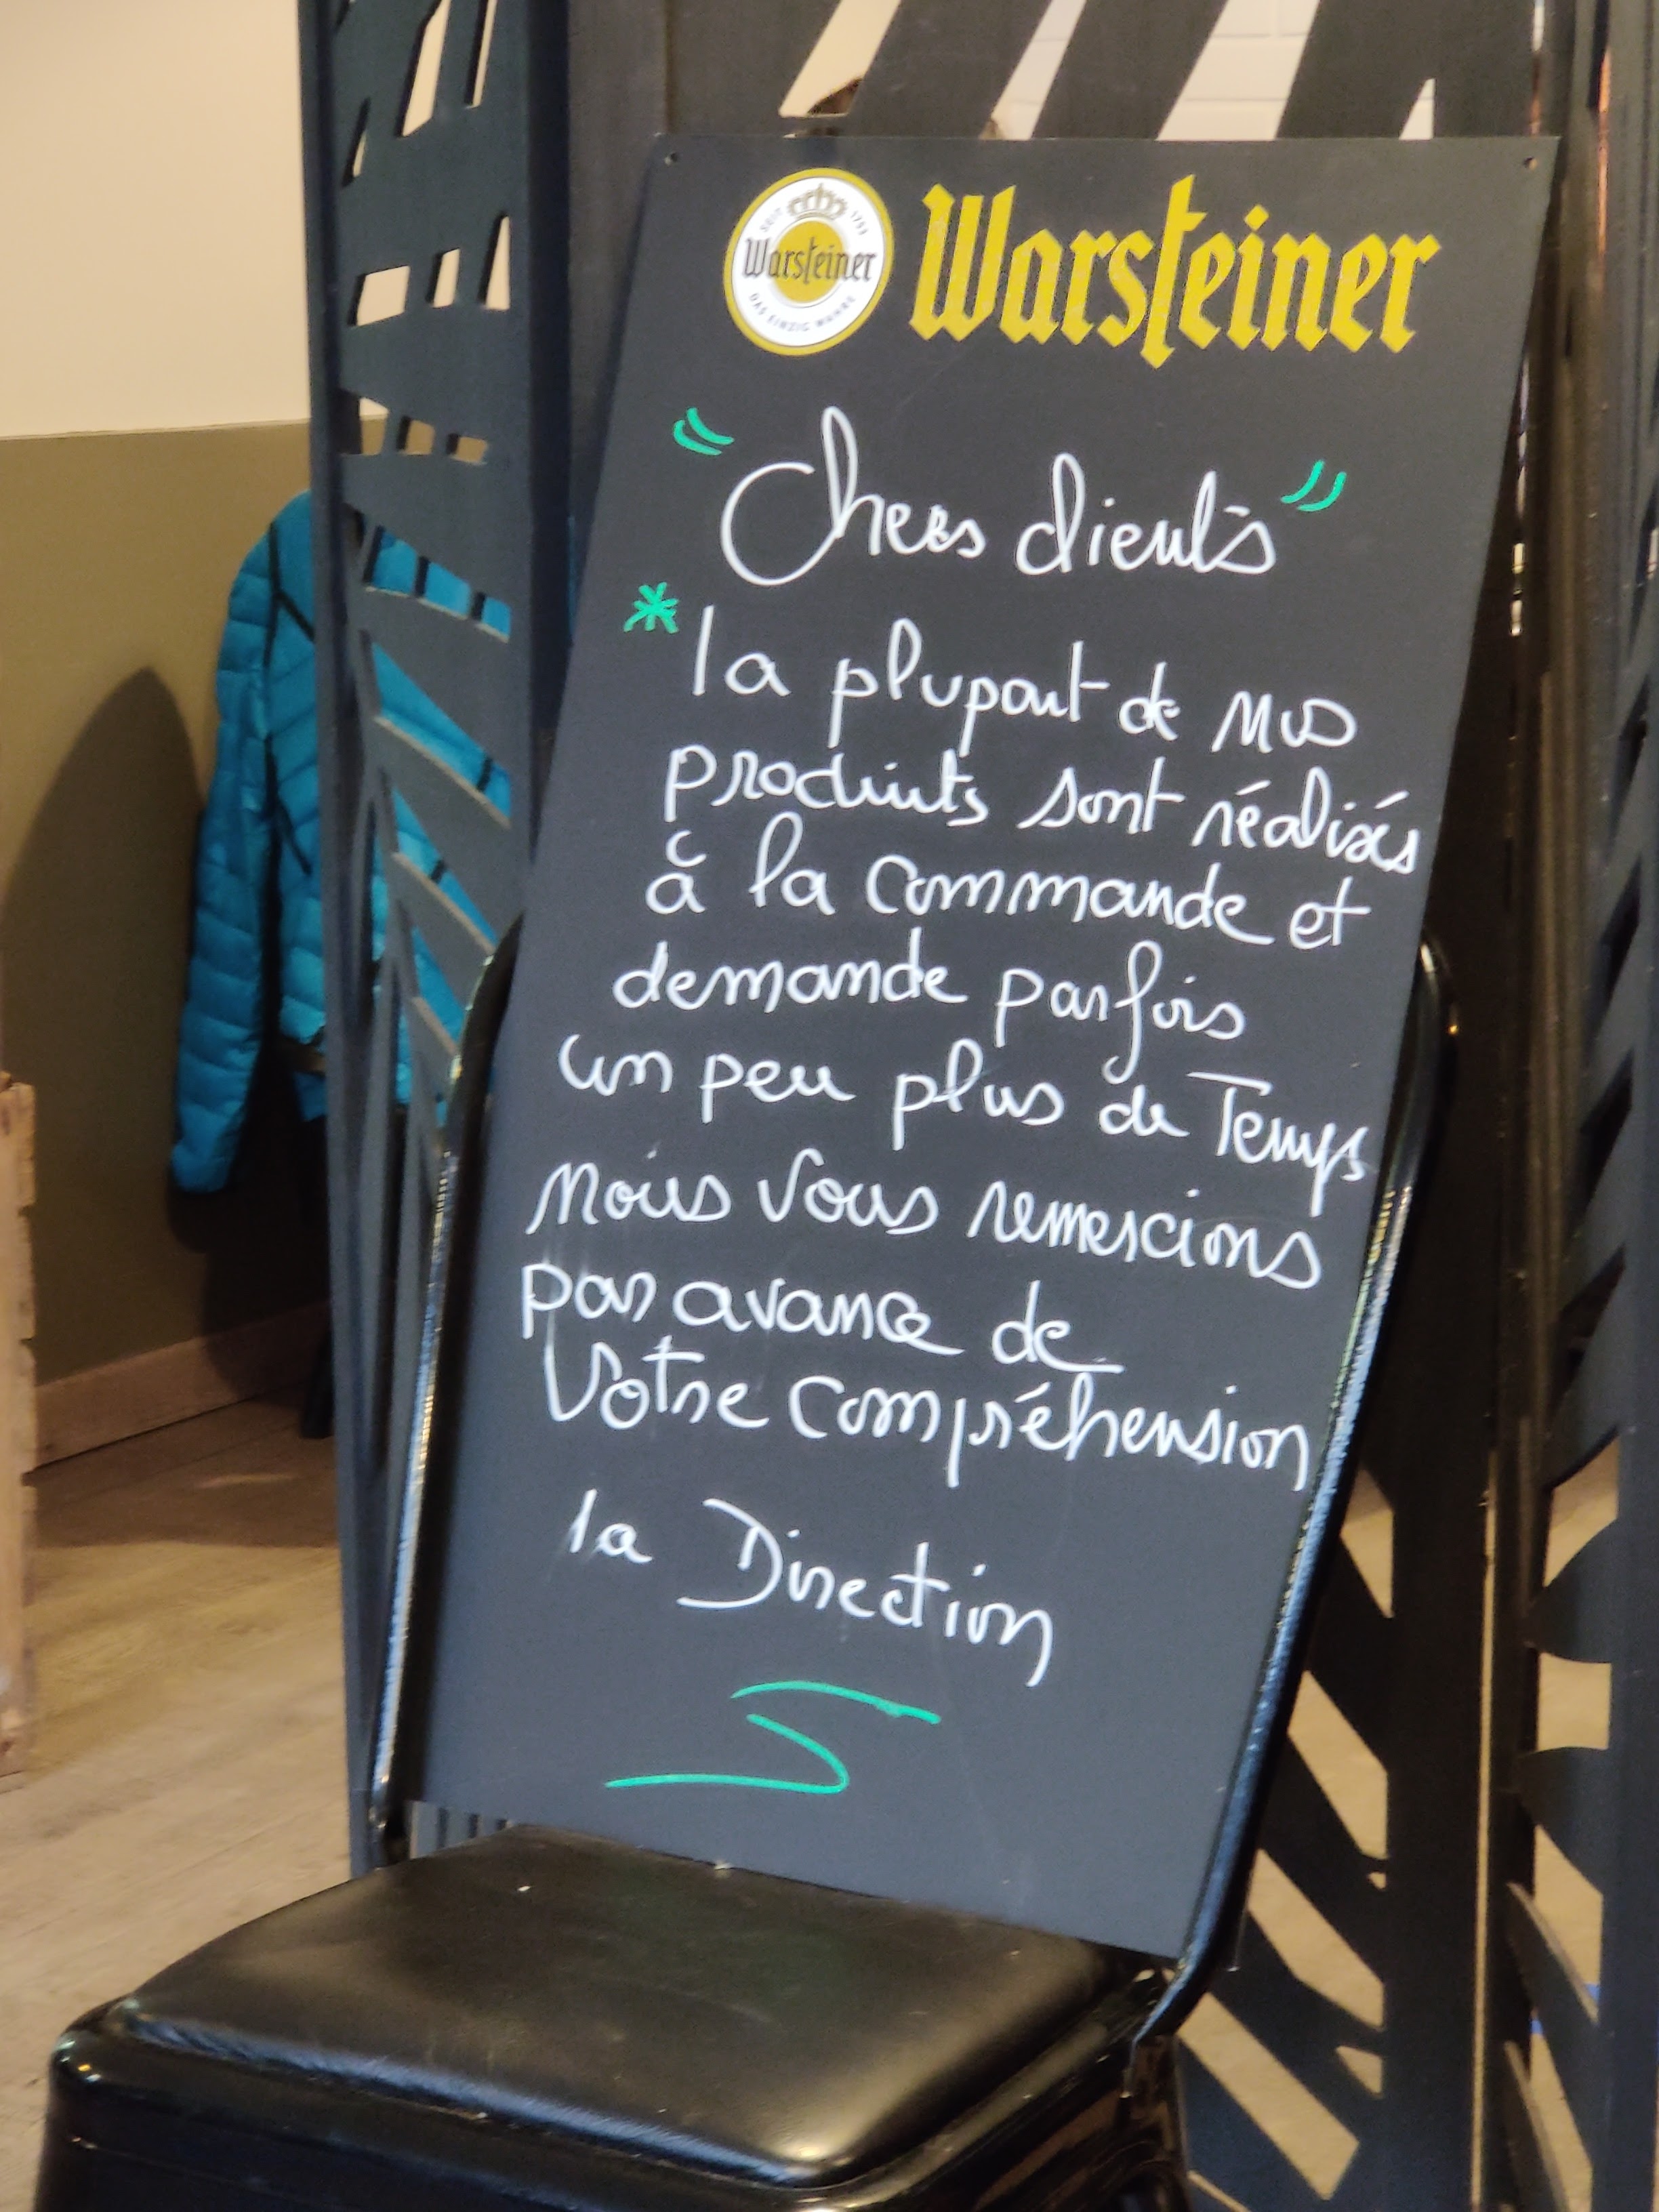 SEIT 1753
Warsteiner
DAS EINZIG WAHRE
Warsteiner
" Chers clients "
* la plupart de nos
produits sont réalisés
à la commande et
demande parfois
un peu plus de Temps
Nous vous remercions
par avance de
Votre compréhension
la Direction